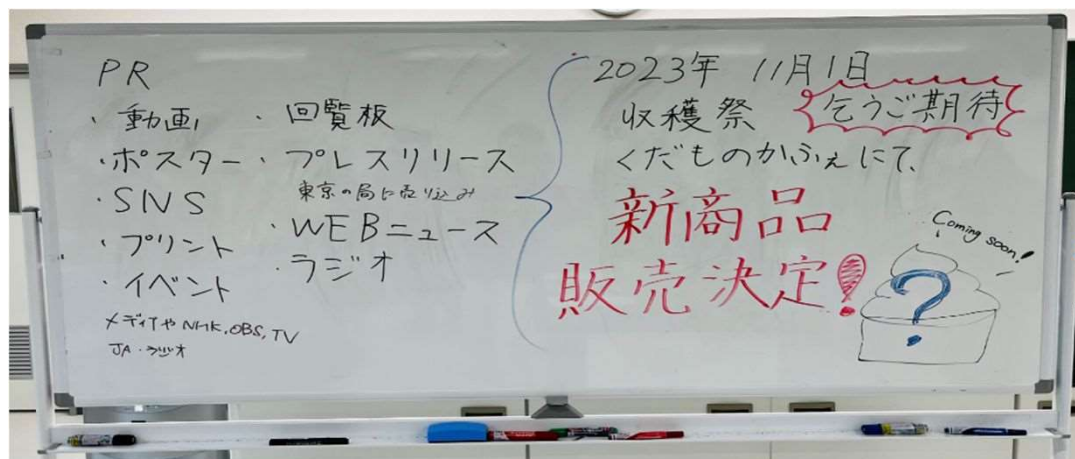 PR
・動画
・ポスター
・SNS
・プリント
・イベント
メディアやNHK,OBS,TV
JA・ラジオ
・回覧板
・プレスリリース
東京の局に売り込み
・WEBニュース
・ラジオ
2023年 11月1日
収穫祭 乞うご期待
くだものかふぇにて、
新商品
販売決定!
Coming soon!
?